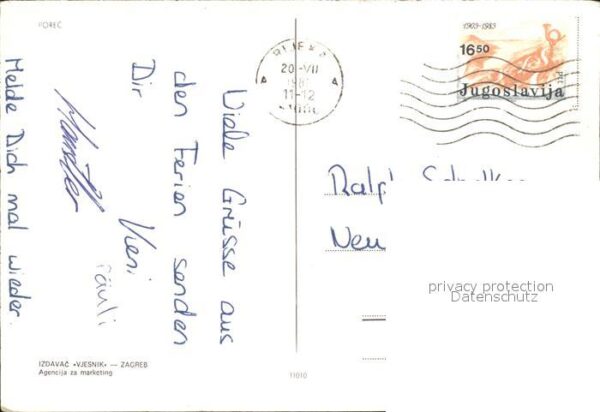 POREČ
Viele Grüsse aus
den Ferien senden
Dir
Vreni
Pauli
Melde Dich mal wieder.
RIJEKA
20-VII
11-12
1903-1983
16.50
Jugoslavija
Ralph
privacy protection
Datenschutz
IZDAVAČ «VJESNIK» — ZAGREB
Agencija za marketing
11010